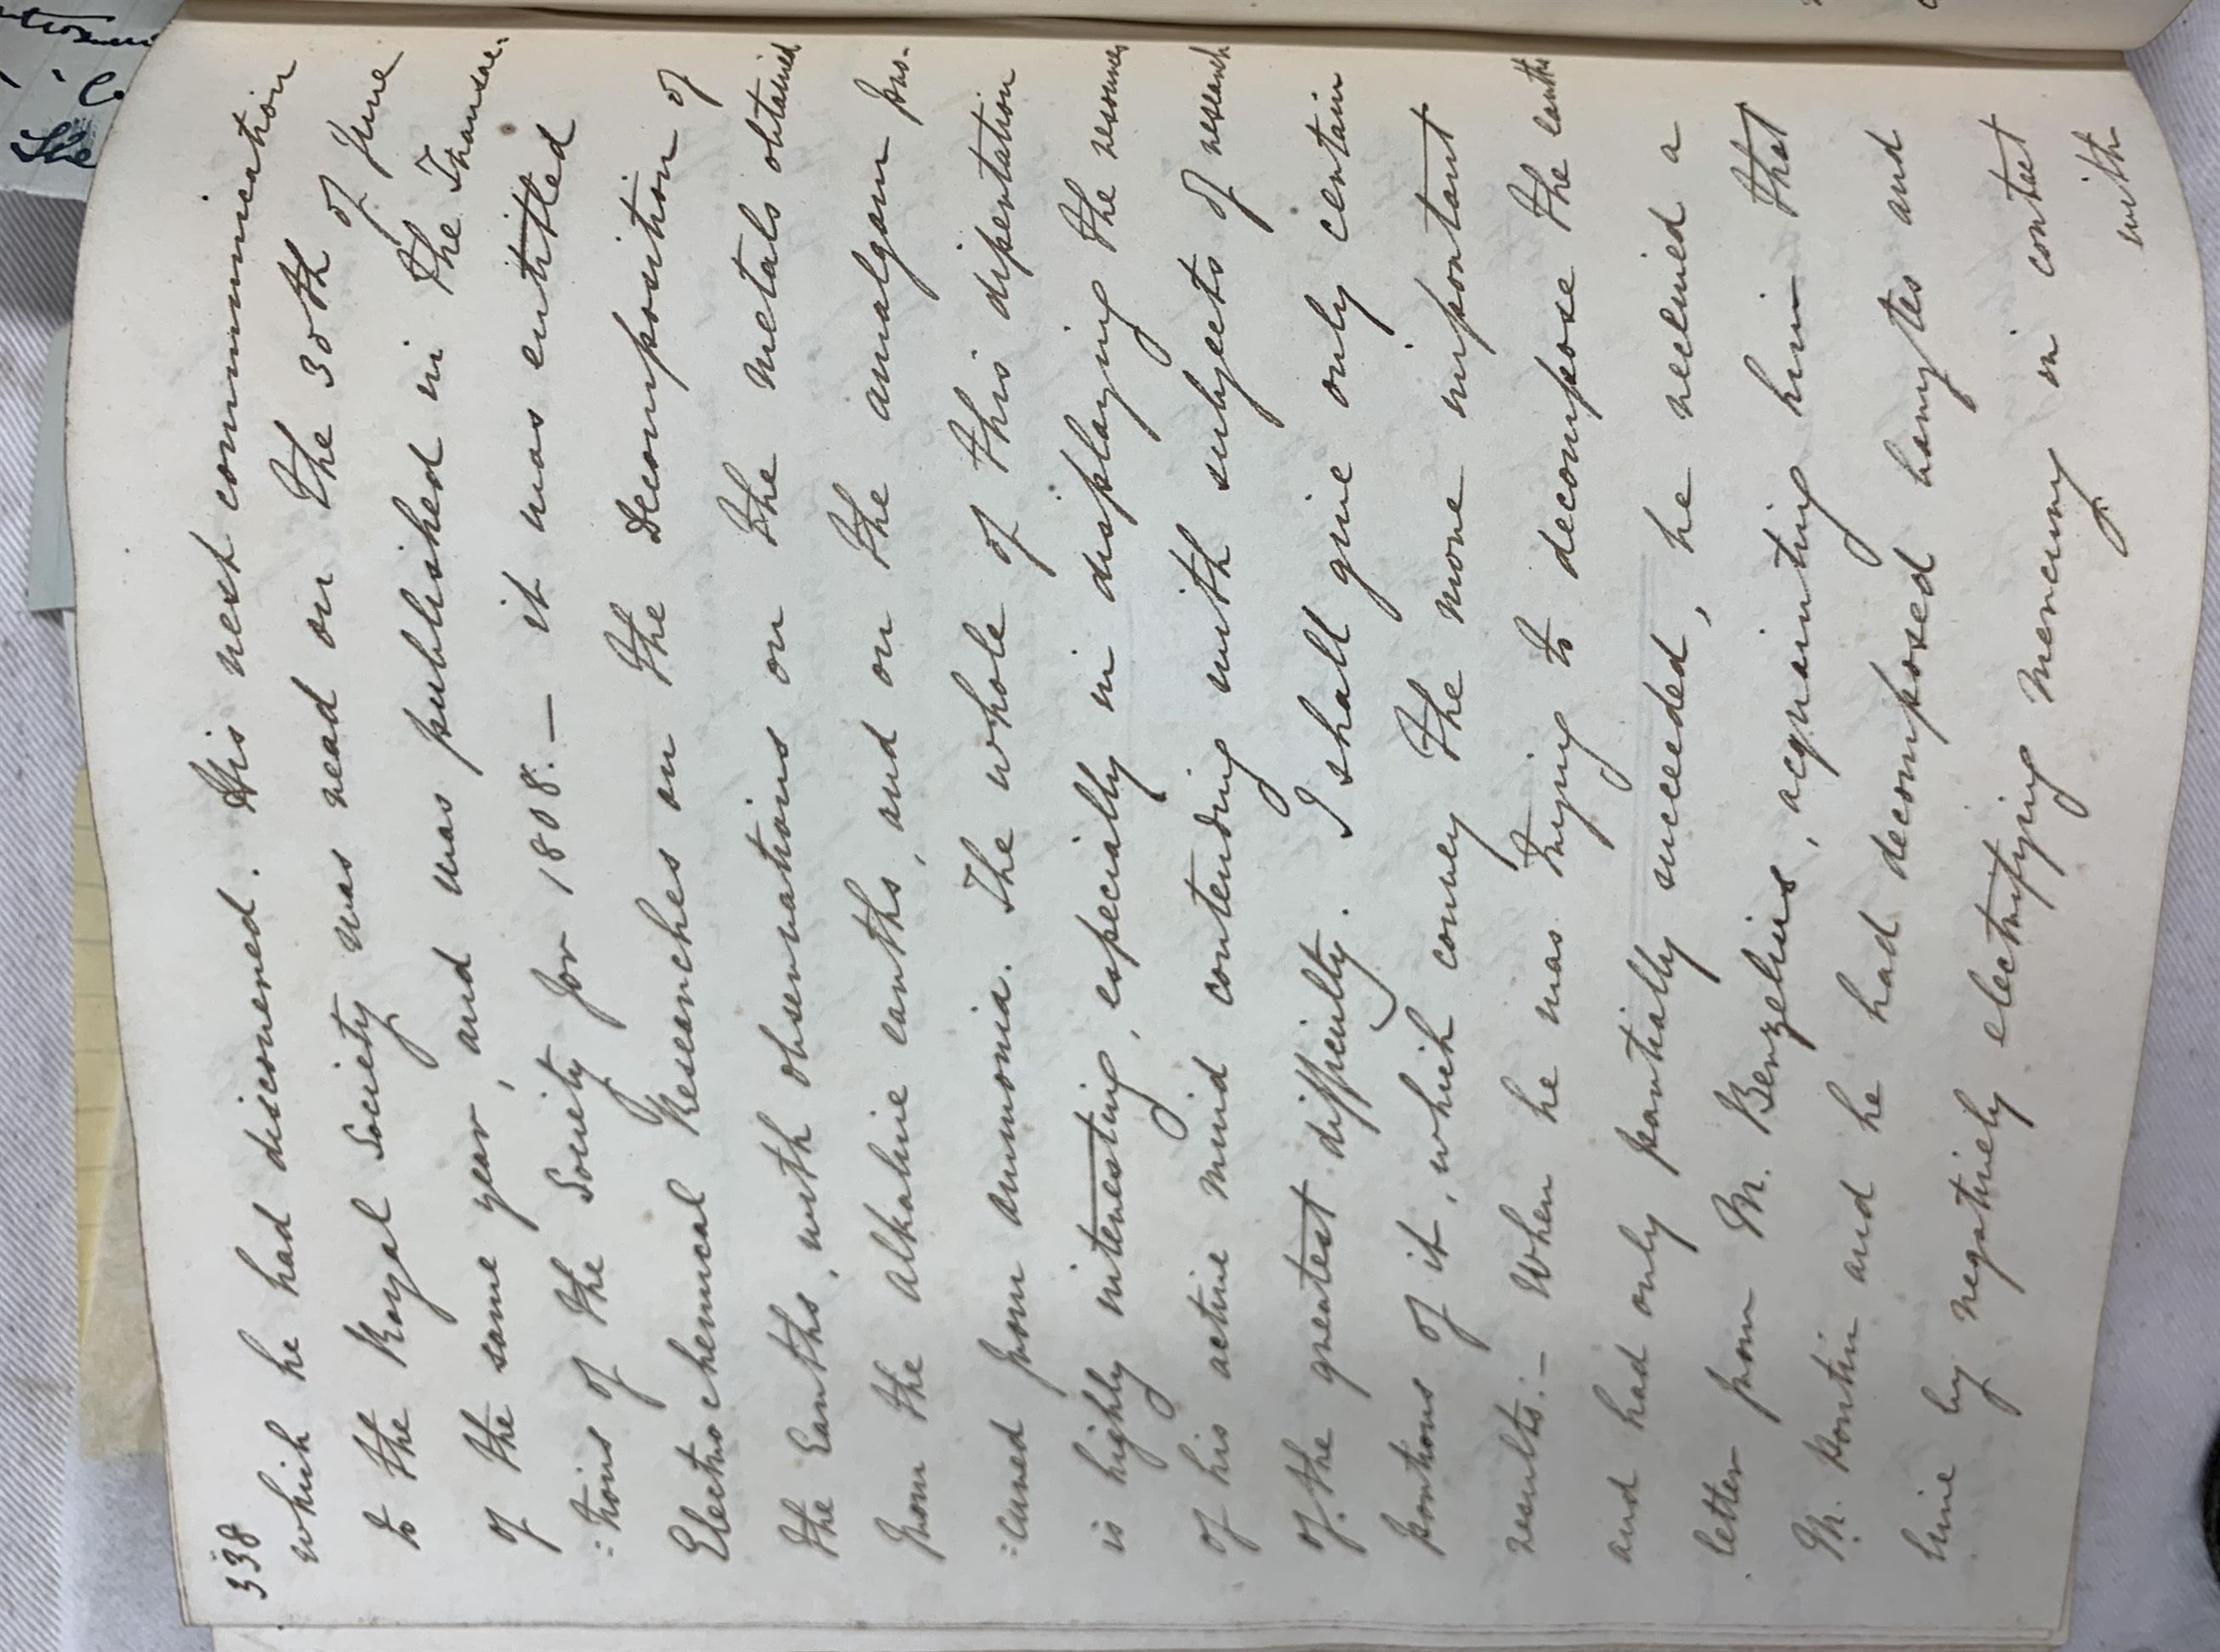 338
which he had discovered. His next communication
to the Royal Society was read on the 30th of June
of the same year, and was published in the Transac:
:tions of the Society for 1808. — it was entitled
Electrochemical Researches on the Decomposition of
the Earths, with observations on the metals obtained
from the alkaline earths, and on the amalgam pro-
:cured from ammonia. The whole of this dissertation
is highly interesting, especially in displaying the resources
of his active mind contending with subjects of research
of the greatest difficulty. I shall give only certain
portions of it, which convey the more important
results:- When he was trying to decompose the earths
and had only partially succeeded, he received a
letter from M. Berzelius, acquainting him that
M. Pontin and he had decomposed barytes and
lime by negatively electrifying mercury in contact
with
The